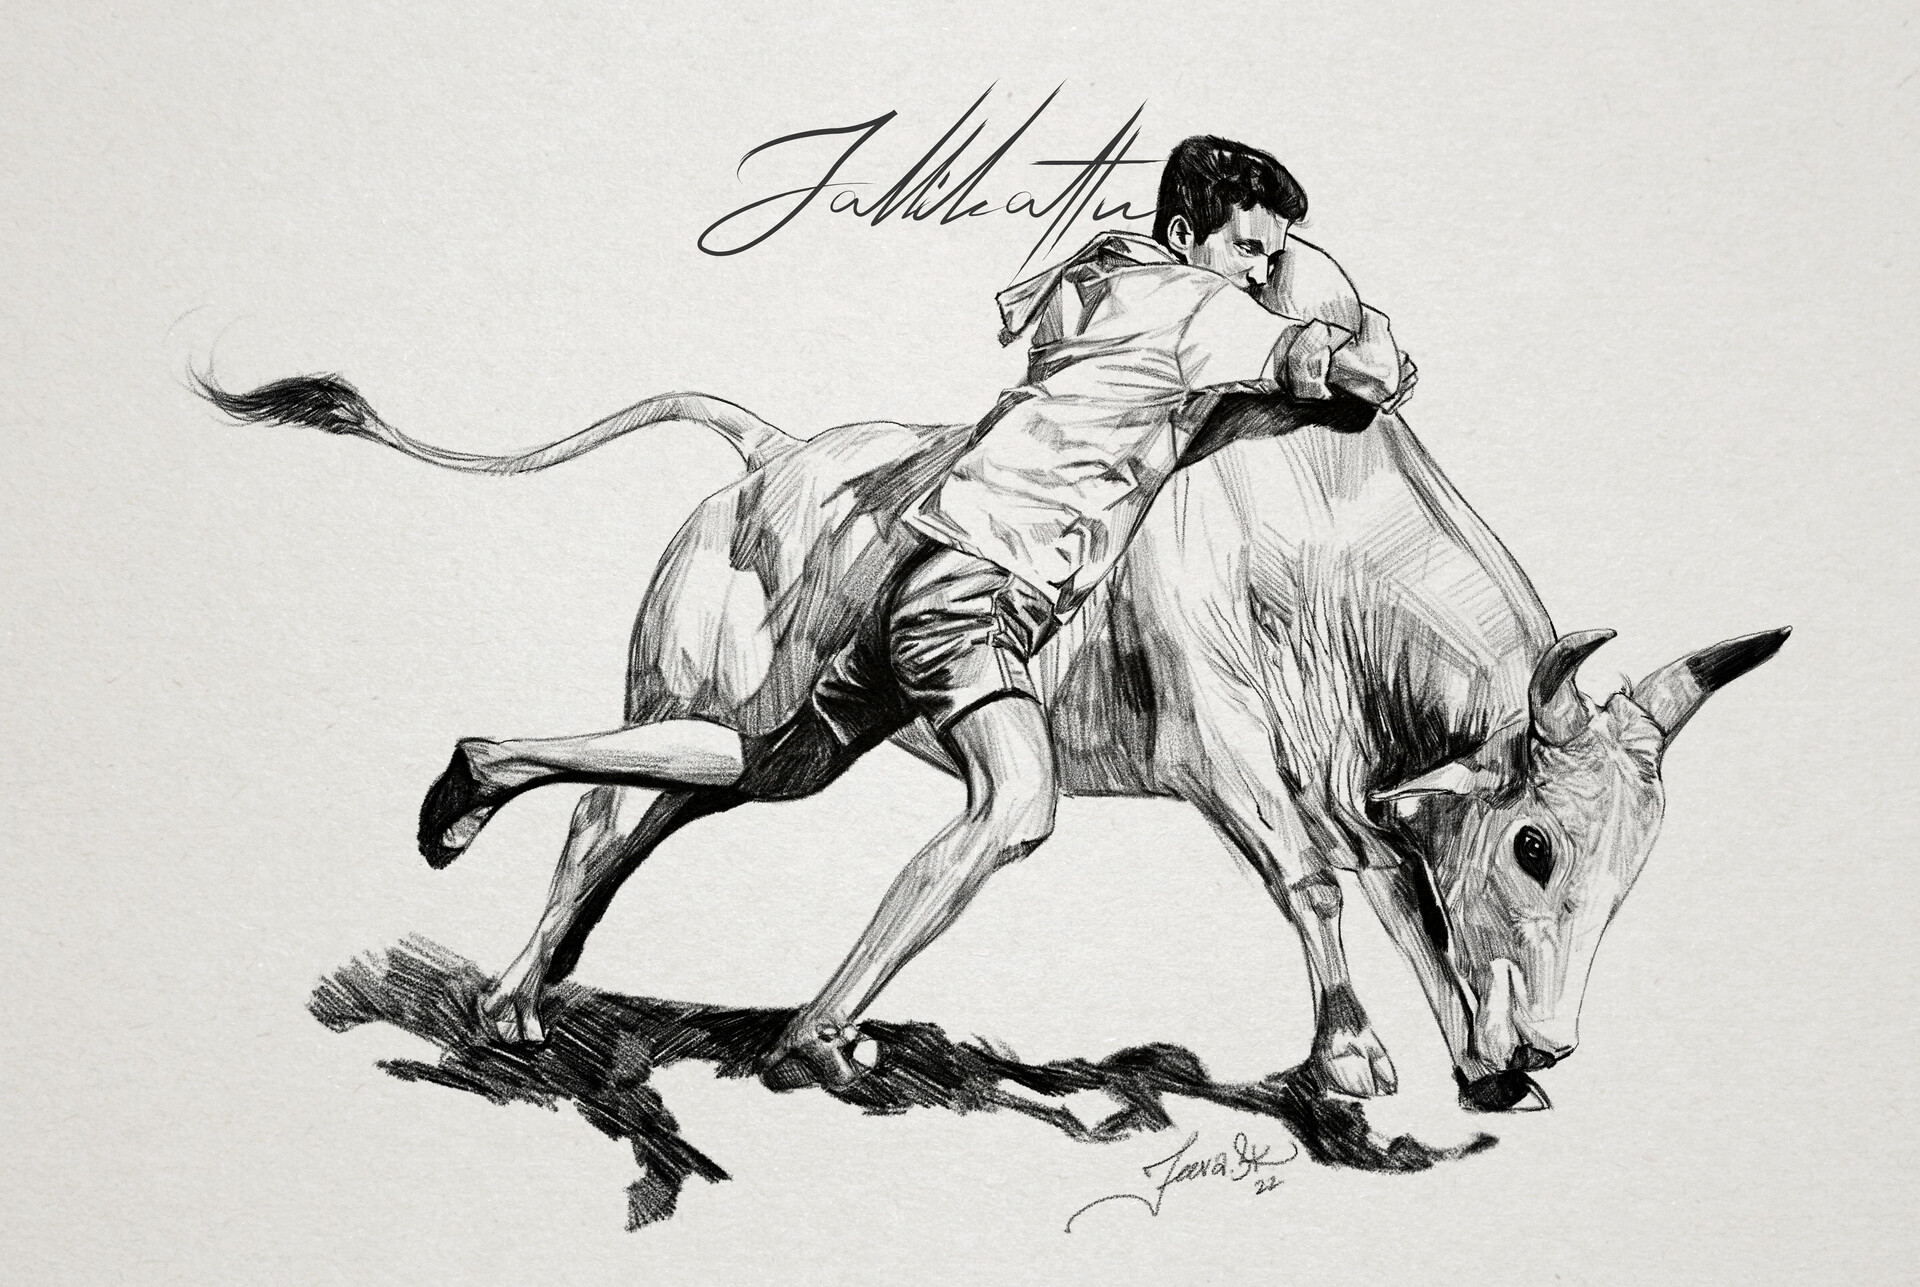 Jallikattu
Jeeva.SK
22